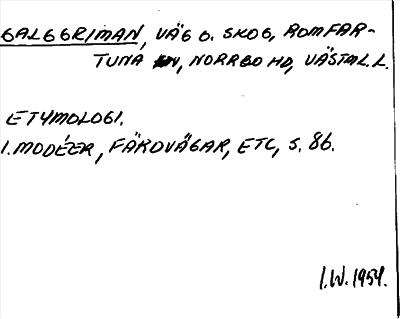 GALGGRIMAN, VÄG O. SKOG, ROMFAR-
TUNA SN, NORRBO HD, VÄSTML. L.
ETYMOLOGI.
I. MODÉER, FÄRDVÄGAR, ETC, S. 86.
I.W. 1954.